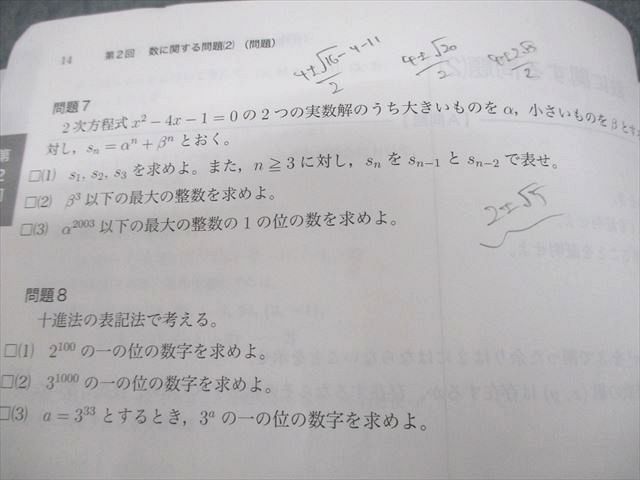 14 第2回 数に関する問題(2) (問題)
4±√16-4-11/2 4±√20/2 4±2√5/2
問題7
2次方程式 x² − 4x − 1 = 0 の2つの実数解のうち大きいものを α, 小さいものを β とす
対し, sₙ = αⁿ + βⁿ とおく。
□(1) s₁, s₂, s₃ を求めよ。また, n ≧ 3 に対し, sₙ を sₙ₋₁ と sₙ₋₂ で表せ。
□(2) β³ 以下の最大の整数を求めよ。
□(3) α²⁰⁰³ 以下の最大の整数の1の位の数を求めよ。
2±√5
第2回
問題8
十進法の表記法で考える。
□(1) 2¹⁰⁰ の一の位の数字を求めよ。
□(2) 3¹⁰⁰⁰ の一の位の数字を求めよ。
□(3) a = 3³³ とするとき, 3ᵃ の一の位の数字を求めよ。